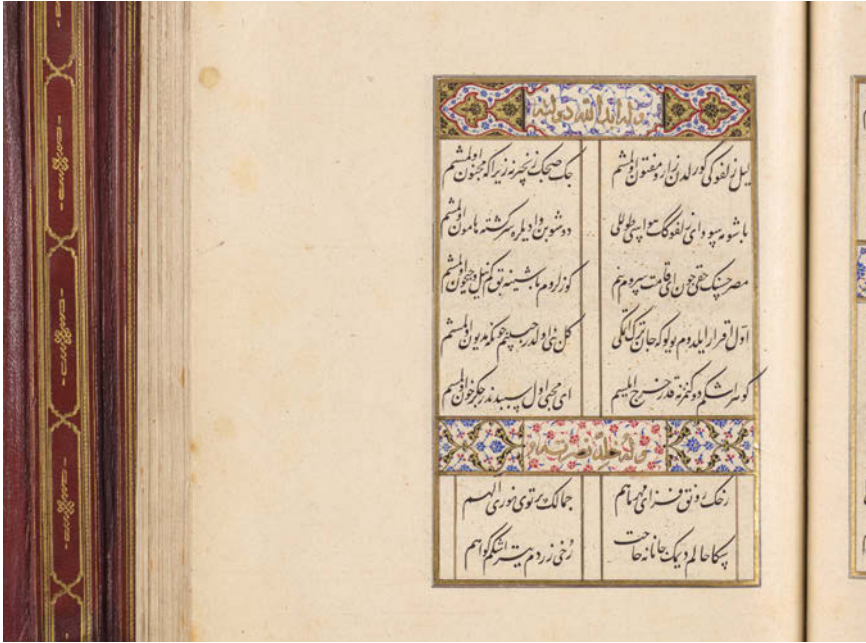 وله ابد الله دولته
ليل زلفوكى كورلدن زار و مفتون اولمشم چك صچك زنجيرنه زيرا كه مجنون اولمشم
باشومه سوداى زلفوك هواسى طوللى دوشوبن واديلره سركشته هامون اولمشم
مصر حسنك حقيچون اى قامت سروم بنم كوزلروم ياشينه بق كم نيل و جيحون اولمشم
اول اقرار ايلدم يولوكه جان ترك اتمكى كل بنى اولدر حبيبم چونكه مديون اولمشم
كوهر اشكم دوكنمز نه قدر خرج ايلسم اى محبى اول سببدندر جكر خون اولمشم
وله خلد نصرته
رخك رونق فزاى مهر و ماهم جمالك پرتوى نورى الهم
سكا حالم ديمك جانا نه حاجت رخى زردم يتر اشكم كواهم